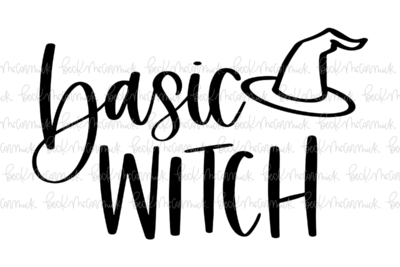 basic
WITCH